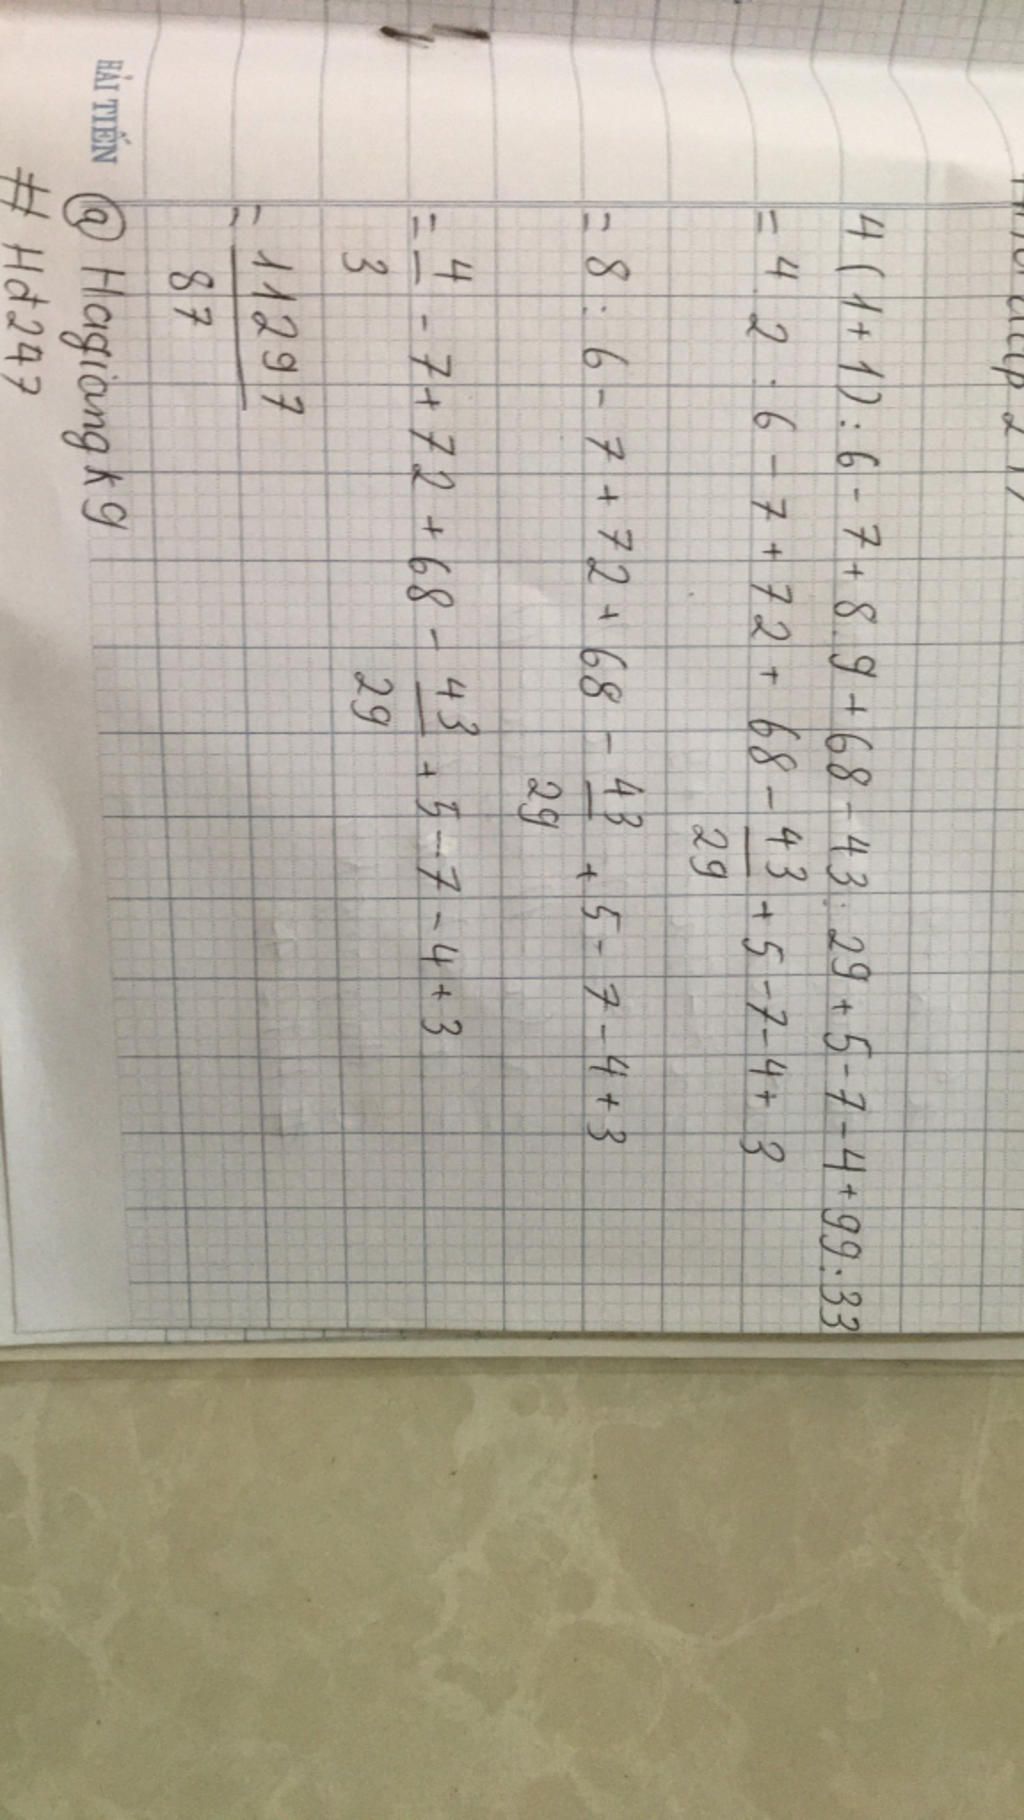 4 (1+1):6-7+8.9+68-43:29+5-7-4+99:33
= 4.2:6-7+72+68-43/29+5-7-4+3
= 8:6-7+72+68-43/29+5-7-4+3
= 4/3-7+72+68-43/29+5-7-4+3
= 11297/87
HẢI TIẾN
@ Hagiangk9
# Hd247